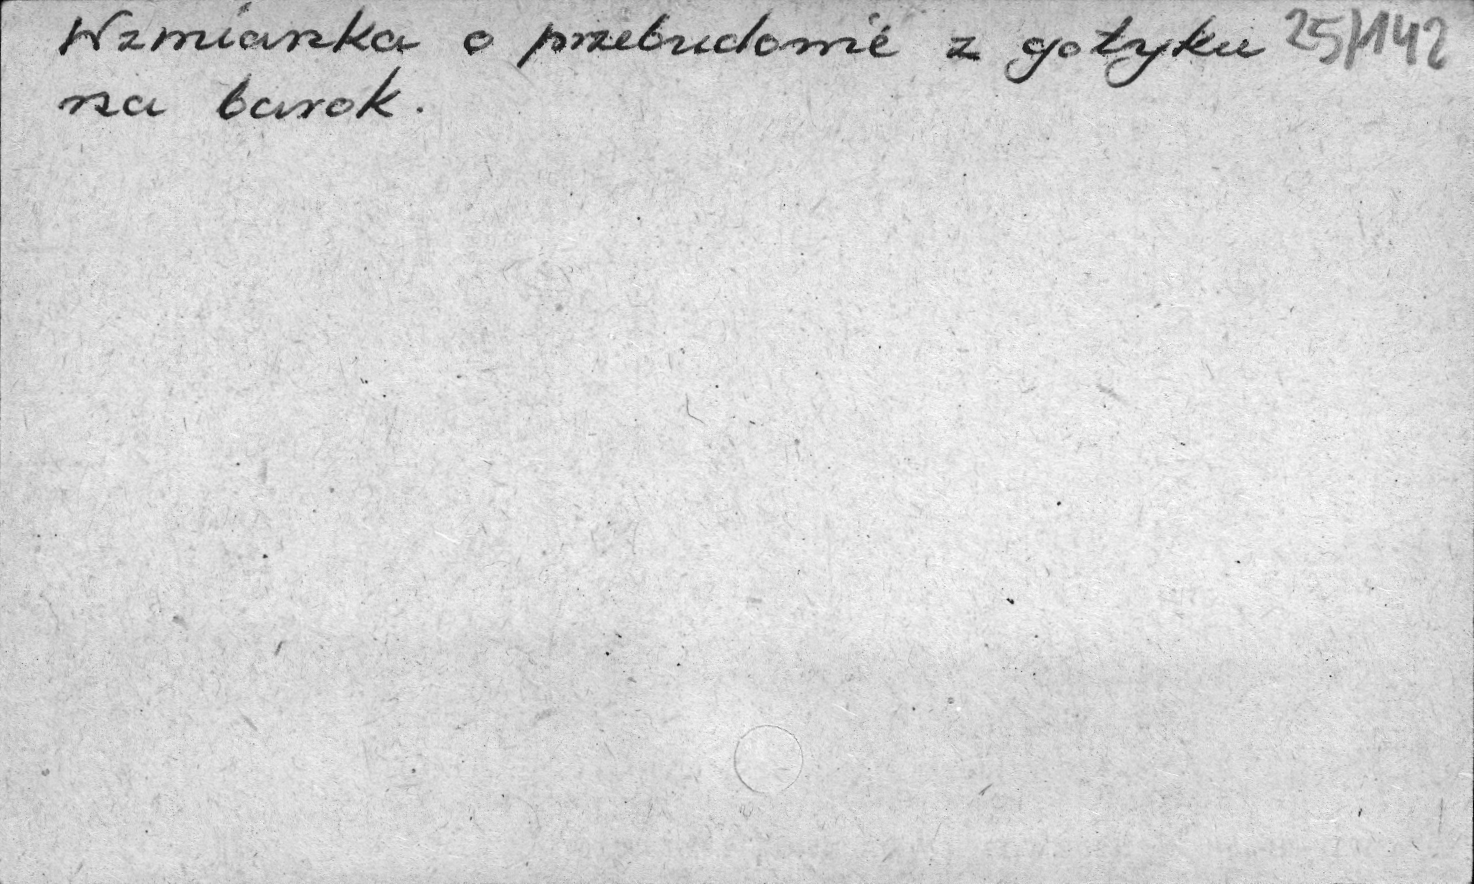 Wzmianka o przebudowie z gotyku 25/142
na barok.